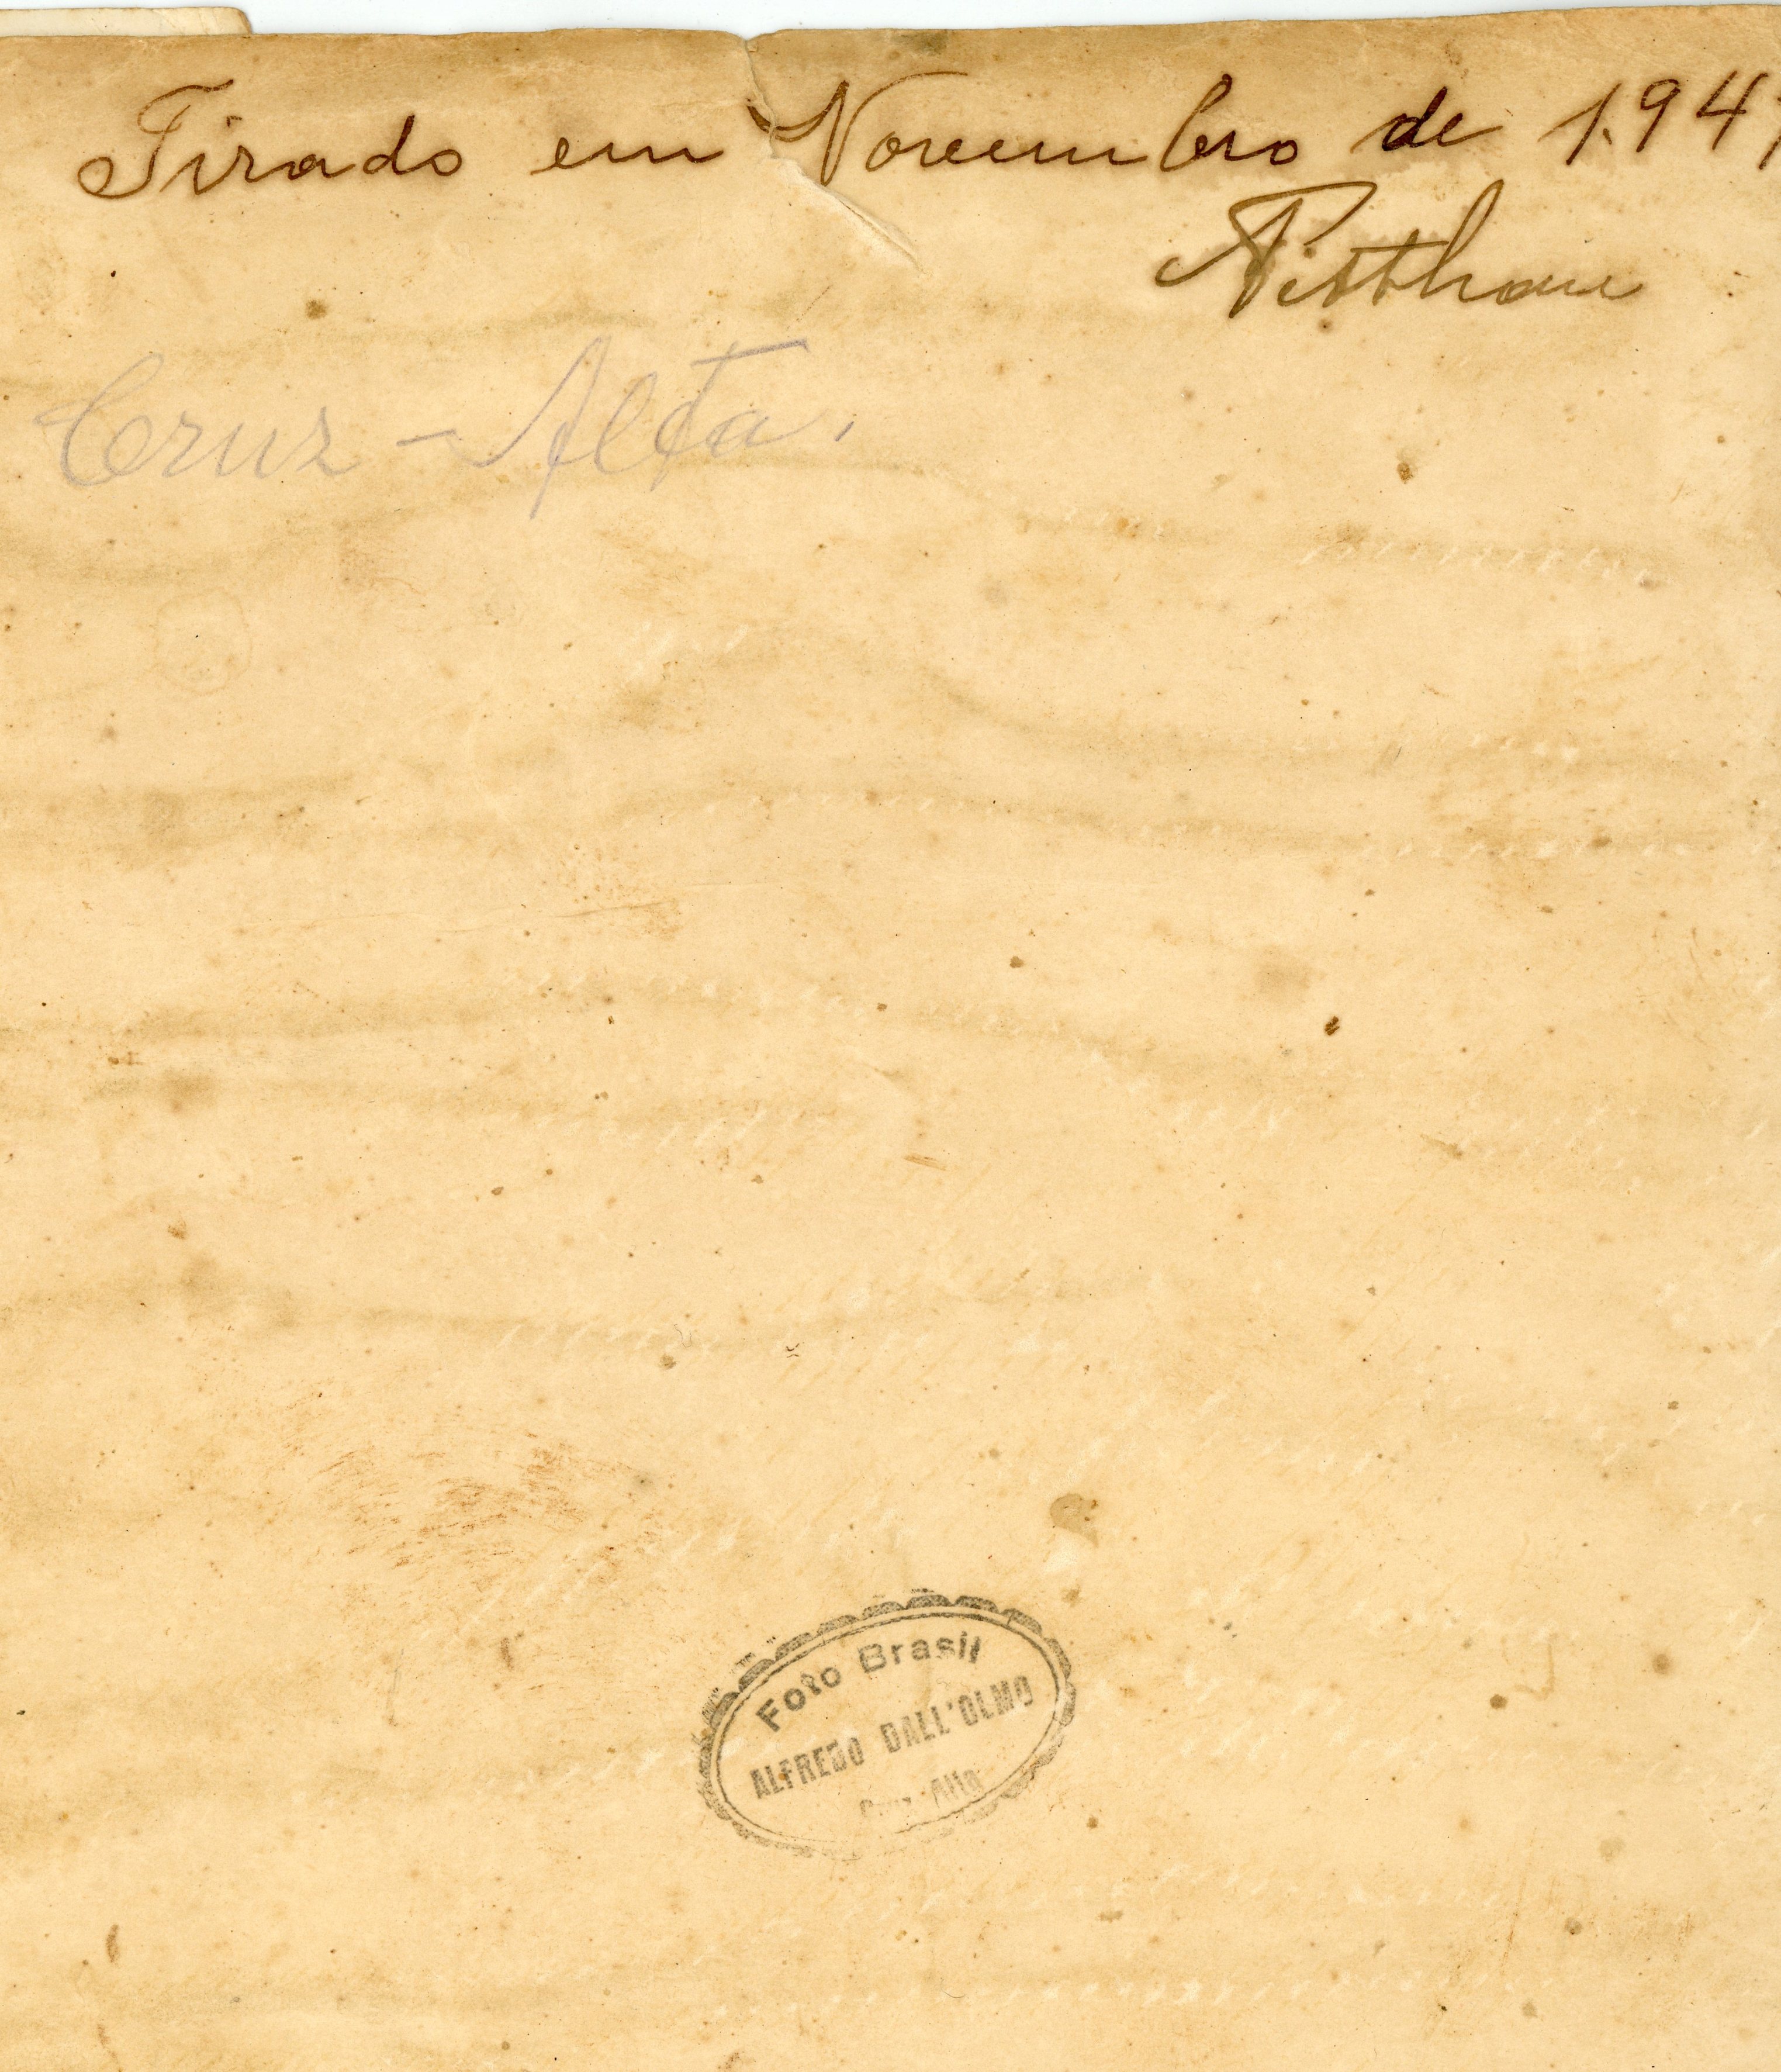 Tirado em Novembro de 1.94
Pitthan
Cruz - Alta.
Foto Brasil
ALFREDO DALL'OLMO
Cruz Alta